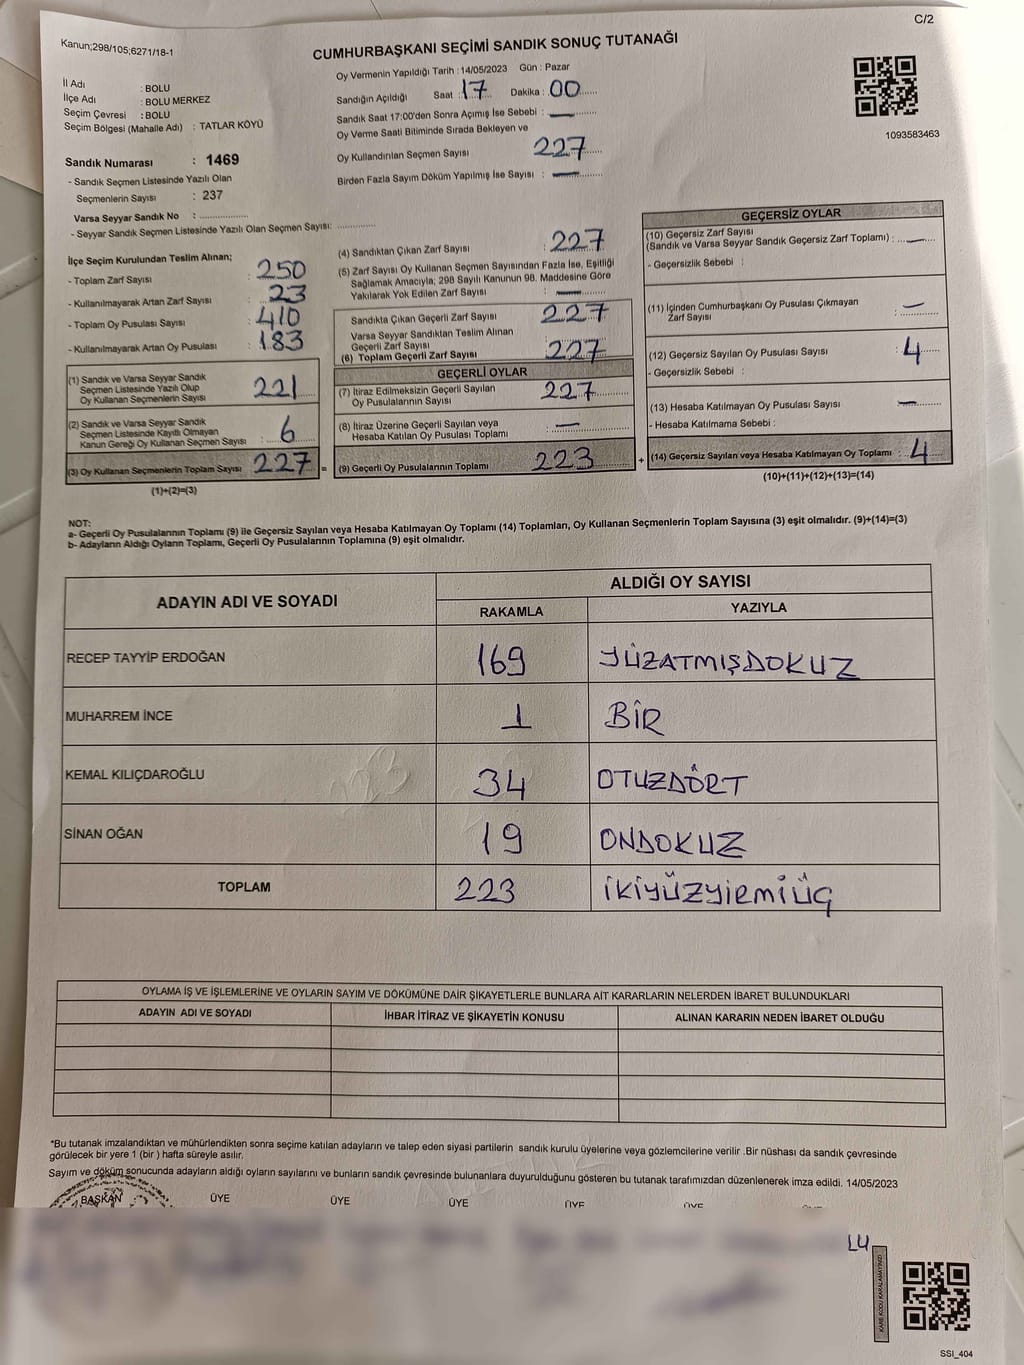 C/2
Kanun;298/105;6271/18-1
CUMHURBAŞKANI SEÇİMİ SANDIK SONUÇ TUTANAĞI
İl Adı : BOLU
İlçe Adı : BOLU MERKEZ
Seçim Çevresi : BOLU
Seçim Bölgesi (Mahalle Adı) : TATLAR KÖYÜ
Sandık Numarası : 1469
- Sandık Seçmen Listesinde Yazılı Olan
Seçmenlerin Sayısı : 237
Varsa Seyyar Sandık No : ..................
- Seyyar Sandık Seçmen Listesinde Yazılı Olan Seçmen Sayısı: ..............
Oy Vermenin Yapıldığı Tarih : 14/05/2023 Gün : Pazar
Sandığın Açıldığı Saat : 17 Dakika : 00
Sandık Saat 17:00'den Sonra Açımış İse Sebebi : —
Oy Verme Saati Bitiminde Sırada Bekleyen ve
Oy Kullandırılan Seçmen Sayısı 227
Birden Fazla Sayım Döküm Yapılmış İse Sayısı : —
1093583463
İlçe Seçim Kurulundan Teslim Alınan;
- Toplam Zarf Sayısı : 250
- Kullanılmayarak Artan Zarf Sayısı : 23
- Toplam Oy Pusulası Sayısı : 410
- Kullanılmayarak Artan Oy Pusulası : 183
(1) Sandık ve Varsa Seyyar Sandık
Seçmen Listesinde Yazılı Olup
Oy Kullanan Seçmenlerin Sayısı : 221
(2) Sandık ve Varsa Seyyar Sandık
Seçmen Listesinde Kayıtlı Olmayan
Kanun Gereği Oy Kullanan Seçmen Sayısı : 6
(3) Oy Kullanan Seçmenlerin Toplam Sayısı : 227 =
(1)+(2)=(3)
(4) Sandıktan Çıkan Zarf Sayısı : 227
(5) Zarf Sayısı Oy Kullanan Seçmen Sayısından Fazla İse, Eşitliği
Sağlamak Amacıyla, 298 Sayılı Kanunun 98. Maddesine Göre
Yakılarak Yok Edilen Zarf Sayısı : —
Sandıkta Çıkan Geçerli Zarf Sayısı : 227
Varsa Seyyar Sandıktan Teslim Alınan
Geçerli Zarf Sayısı :
(6) Toplam Geçerli Zarf Sayısı : 227
GEÇERLİ OYLAR
(7) İtiraz Edilmeksizin Geçerli Sayılan
Oy Pusulalarının Sayısı : 227
(8) İtiraz Üzerine Geçerli Sayılan veya
Hesaba Katılan Oy Pusulası Toplamı : —
(9) Geçerli Oy Pusulalarının Toplamı : 223 +
GEÇERSİZ OYLAR
(10) Geçersiz Zarf Sayısı
(Sandık ve Varsa Seyyar Sandık Geçersiz Zarf Toplamı) : —
- Geçersizlik Sebebi :
(11) İçinden Cumhurbaşkanı Oy Pusulası Çıkmayan
Zarf Sayısı : —
(12) Geçersiz Sayılan Oy Pusulası Sayısı : 4
- Geçersizlik Sebebi :
(13) Hesaba Katılmayan Oy Pusulası Sayısı : —
- Hesaba Katılmama Sebebi :
(14) Geçersiz Sayılan veya Hesaba Katılmayan Oy Toplamı : 4
(10)+(11)+(12)+(13)=(14)
NOT:
a- Geçerli Oy Pusulalarının Toplamı (9) ile Geçersiz Sayılan veya Hesaba Katılmayan Oy Toplamı (14) Toplamları, Oy Kullanan Seçmenlerin Toplam Sayısına (3) eşit olmalıdır. (9)+(14)=(3)
b- Adayların Aldığı Oyların Toplamı, Geçerli Oy Pusulalarının Toplamına (9) eşit olmalıdır.
ADAYIN ADI VE SOYADI ALDIĞI OY SAYISI
RAKAMLA YAZIYLA
RECEP TAYYİP ERDOĞAN 169 YÜZATMIŞDOKUZ
MUHARREM İNCE 1 BİR
KEMAL KILIÇDAROĞLU 34 OTUZDÖRT
SİNAN OĞAN 19 ONDOKUZ
TOPLAM 223 İKİYÜZYİRMİÜÇ
OYLAMA İŞ VE İŞLEMLERİNE VE OYLARIN SAYIM VE DÖKÜMÜNE DAİR ŞİKAYETLERLE BUNLARA AİT KARARLARIN NELERDEN İBARET BULUNDUKLARI
ADAYIN ADI VE SOYADI İHBAR İTİRAZ VE ŞİKAYETİN KONUSU ALINAN KARARIN NEDEN İBARET OLDUĞU
*Bu tutanak imzalandıktan ve mühürlendikten sonra seçime katılan adayların ve talep eden siyasi partilerin sandık kurulu üyelerine veya gözlemcilerine verilir .Bir nüshası da sandık çevresinde
görülecek bir yere 1 (bir ) hafta süreyle asılır.
Sayım ve döküm sonucunda adayların aldığı oyların sayılarını ve bunların sandık çevresinde bulunanlara duyurulduğunu gösteren bu tutanak tarafımızdan düzenlenerek imza edildi. 14/05/2023
BAŞKAN ÜYE ÜYE ÜYE ÜYE ÜYE
LU
KARE KODU KARALAMAYINIZ!
SSİ_404